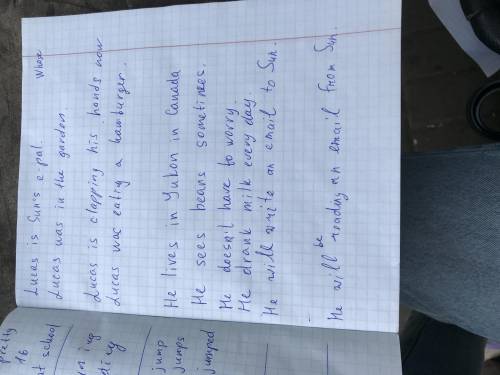 Lucas is Sun's e-pal.
Lucas was in the garden.
Lucas is clapping his hands now
Lucas was eating a hamburger.
He lives in Yukon in Canada
He sees bears sometimes.
He doesn't have to worry.
He drank milk every day.
He will write an email to Sun.
He will be reading an email from Sun.
pretty
16
at school
jump
jumps
jumped